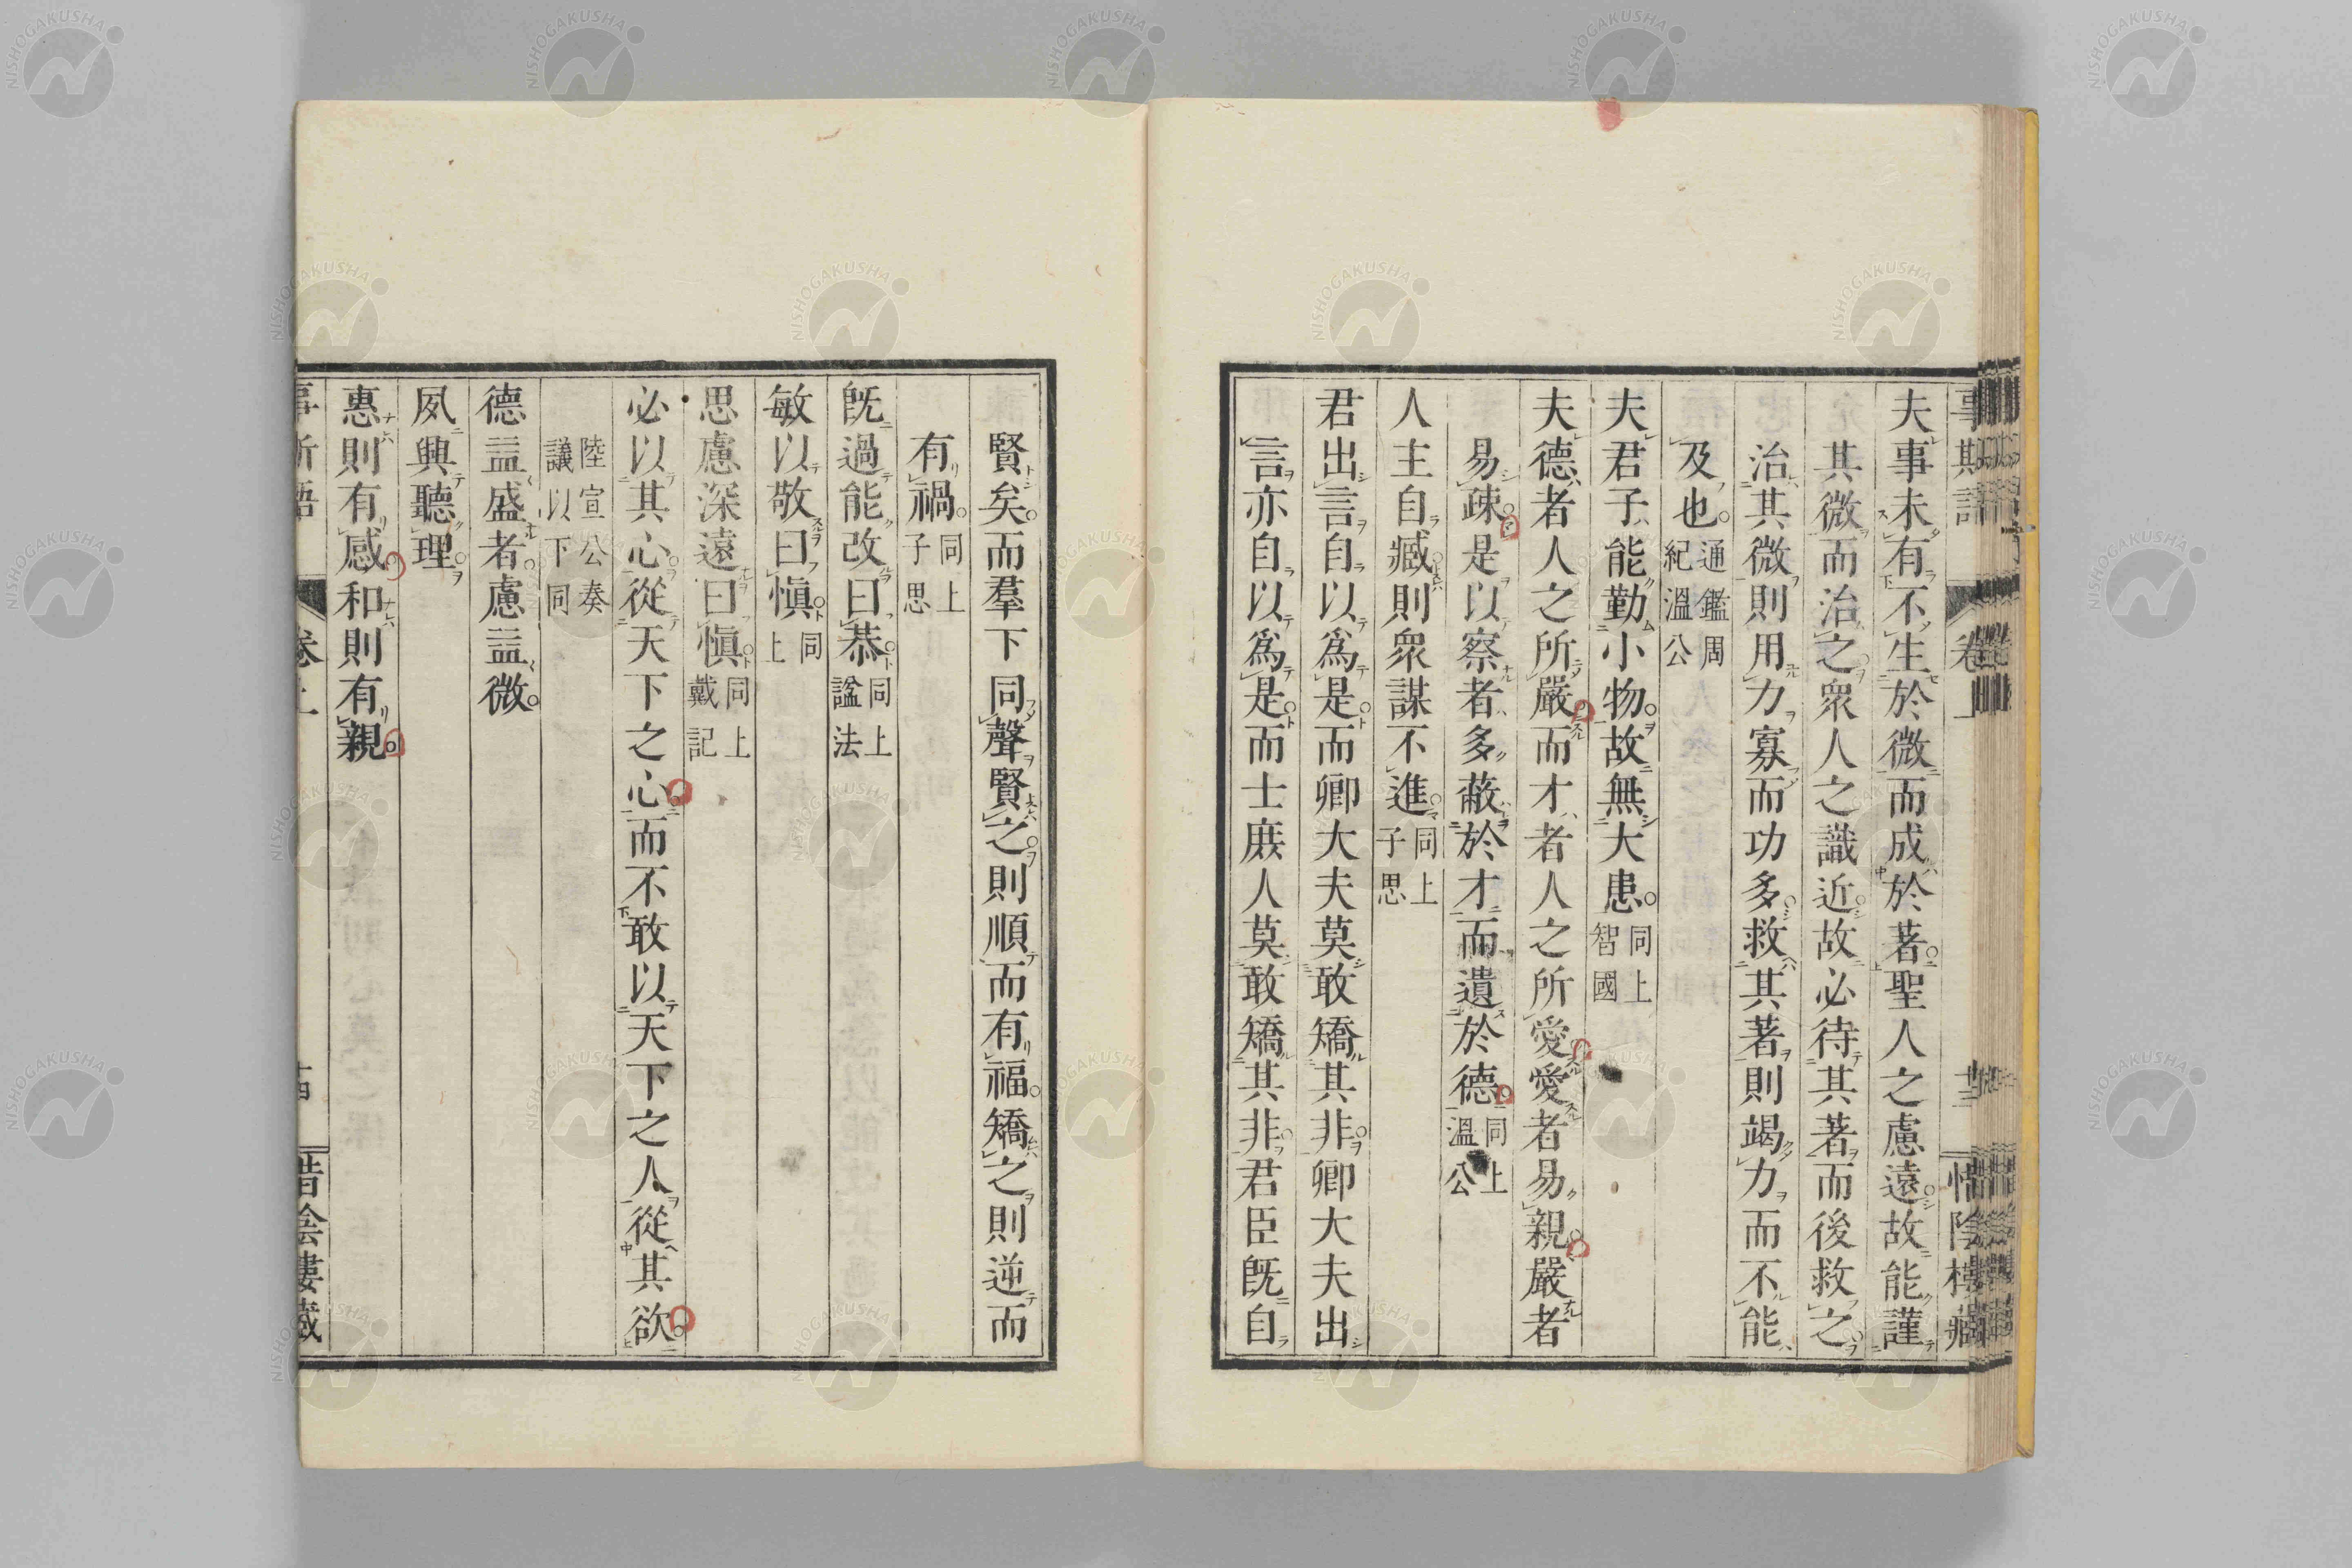 夫事未有不生於微而成於著聖人之慮遠故能謹
其微而治之衆人之識近故必待其著而後救之
治其微則用力寡而功多救其著則竭力而不能
及也。通鑑周紀溫公
夫君子能勤小物故無大患。同上智國
夫德者人之所嚴而才者人之所愛愛者易親嚴者
易疎是以察者多蔽於才而遺於德。同上溫公
人主自臧則衆謀不進。同上子思
君出言自以爲是而卿大夫莫敢矯其非卿大夫出
言亦自以爲是而士庶人莫敢矯其非君臣既自
賢矣。而羣下同聲賢之則順而有福。矯之則逆而
有禍。同上子思
既過能改曰恭同上謚法
敏以敬曰愼同上
思慮深遠曰愼同上戴記
必以其心從天下之心而不敢以天下之人從其欲
陸宣公奏議以下同
德益盛者慮益微。
夙興聽理
惠則有感和則有親
卷上
惜陰樓藏
NISHOGAKUSHA